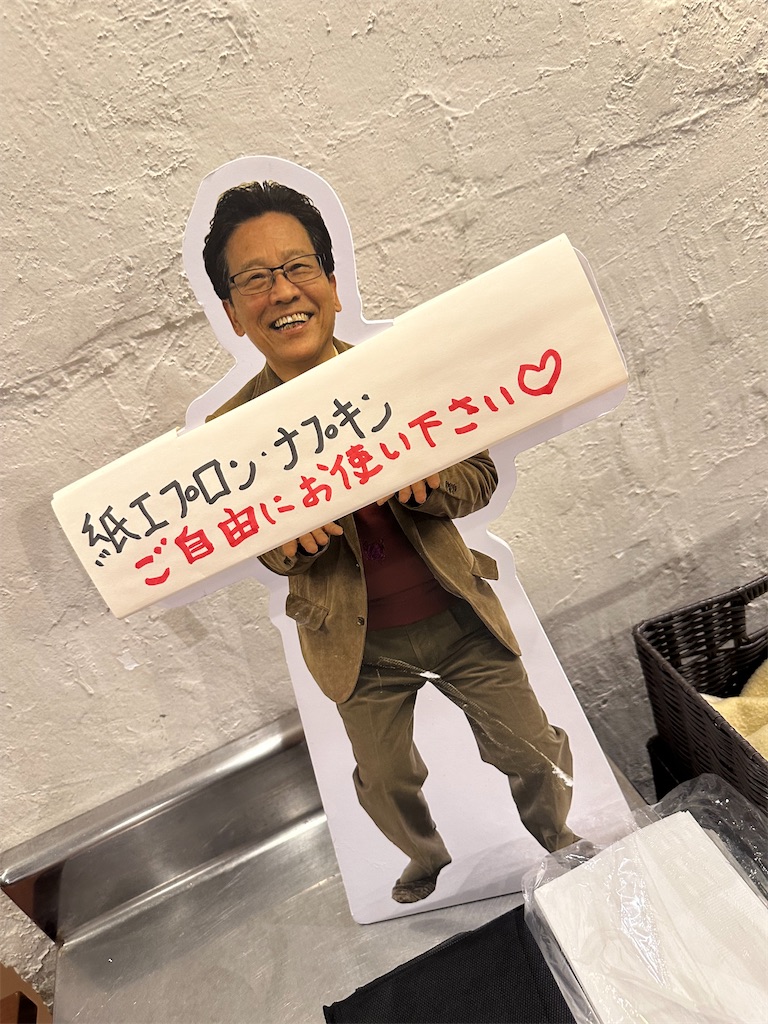 紙エプロン・ナプキン
ご自由にお使い下さい♡